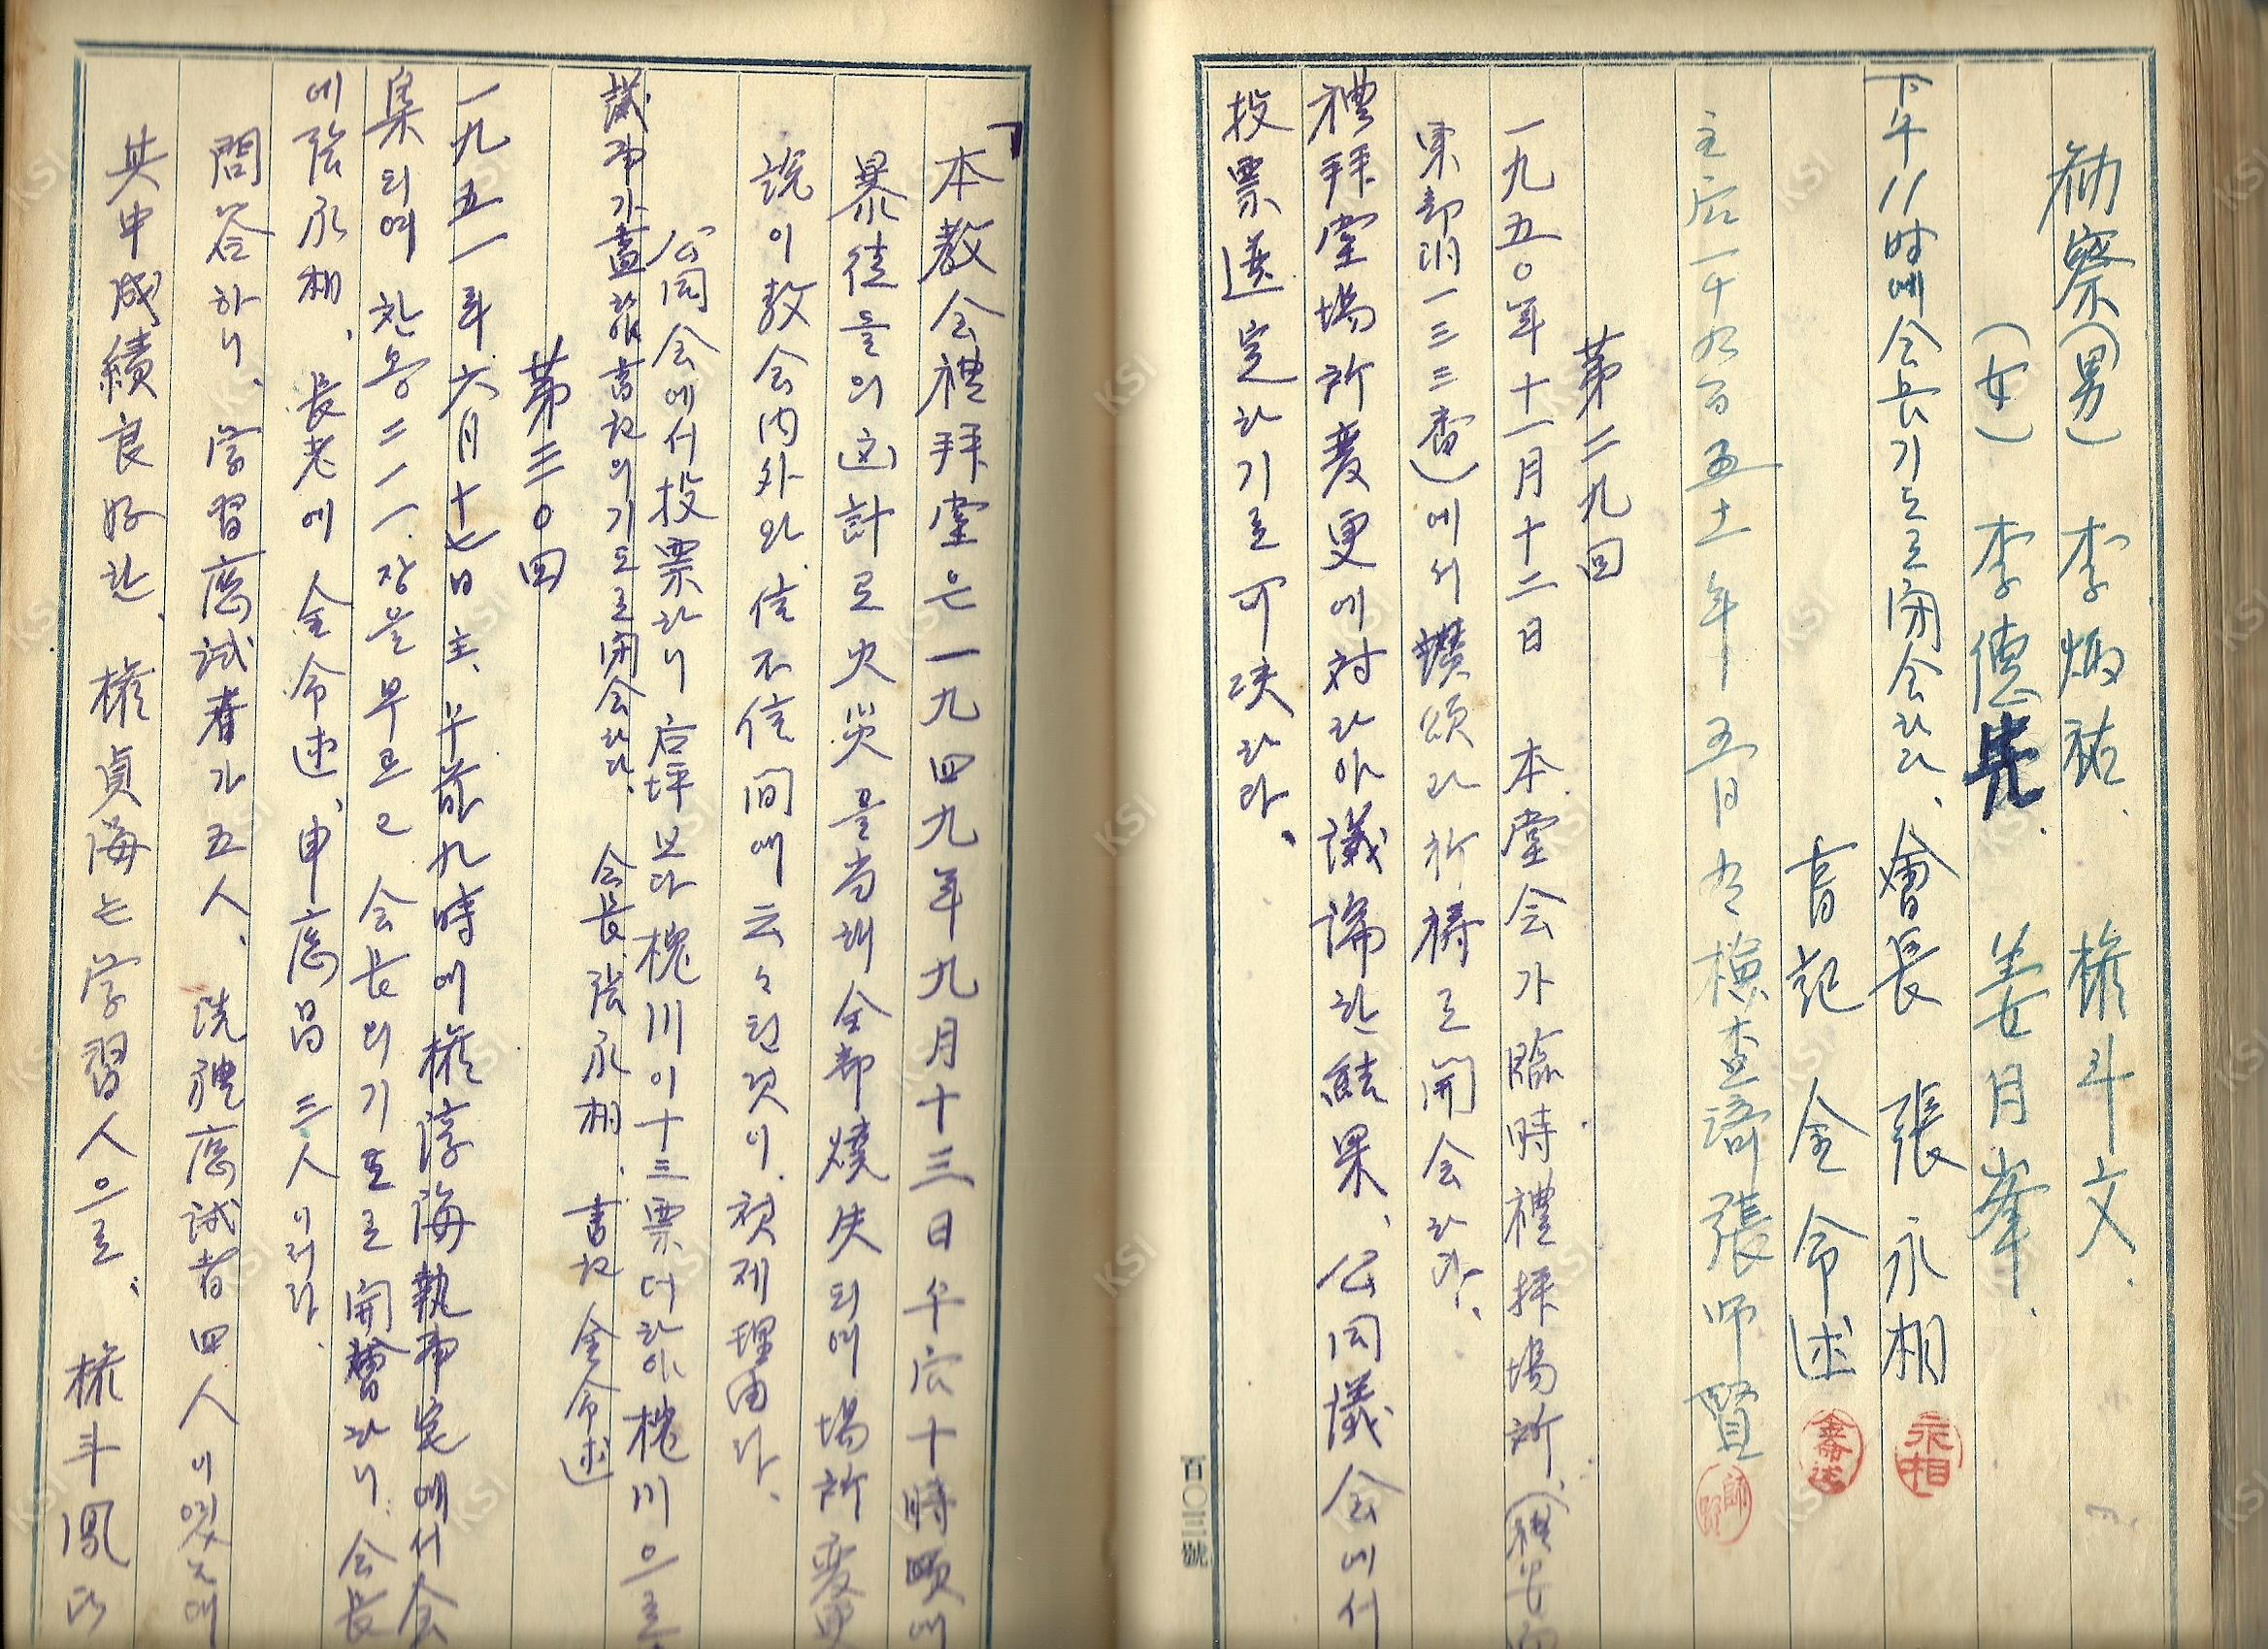 勅察(男) 李炳祐. 權斗文.
(女) 李德先. 姜月峯.
下午八时에 会長기도로 闭会하다. 會長 張永相 永相
書記 金命述 金命述
主后一千九百五十一年 五日 檢査濟 張師賢 師賢
第二九回
一九五〇年十一月十二日 本堂会가 臨時禮拜場所.(禮安面
東部洞一三三番)에서 讚頌과 祈禱로 開会하다.
禮拜堂場所変更에 対하야 議論한 結果、公同議会에서
投票選定하기로 可决하다.
「本敎会禮拜堂은 一九四九年九月十三日午后十時頃에
暴徒들의 凶計로 火災를 当해 全部燒失되여 場所変更
說이 敎会内外와 信不信間에 云々 된 것이. 첫제 理由라.
公同会에서 投票하니 后坪보다 槐川이 十三票 더하야 槐川으로.
議事가 盡하 書記의 기도로 闭会하다. 会長 張永相. 書記 金命述
第三〇回
一九五一年六月十七日 主. 午前九時에 權淳海執事宅에서 会
集되여 찬송二一一장을 부르고 会長의 기도로 開會하니. 会長
에 張永相. 長老에 金命述. 申應昌 三人이러라.
問答하니. 学習應試者가 五人. 洗禮應試者四人이였는대
其中成績良好한. 權貞海는 学習人으로. 權斗鳳
百〇三號
KSI